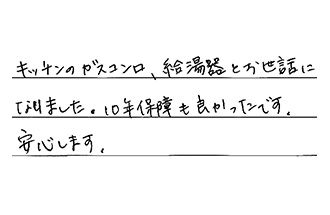 キッチンのガスコンロ、給湯器とお世話に
なりました。10年保障も良かったです。
安心します。